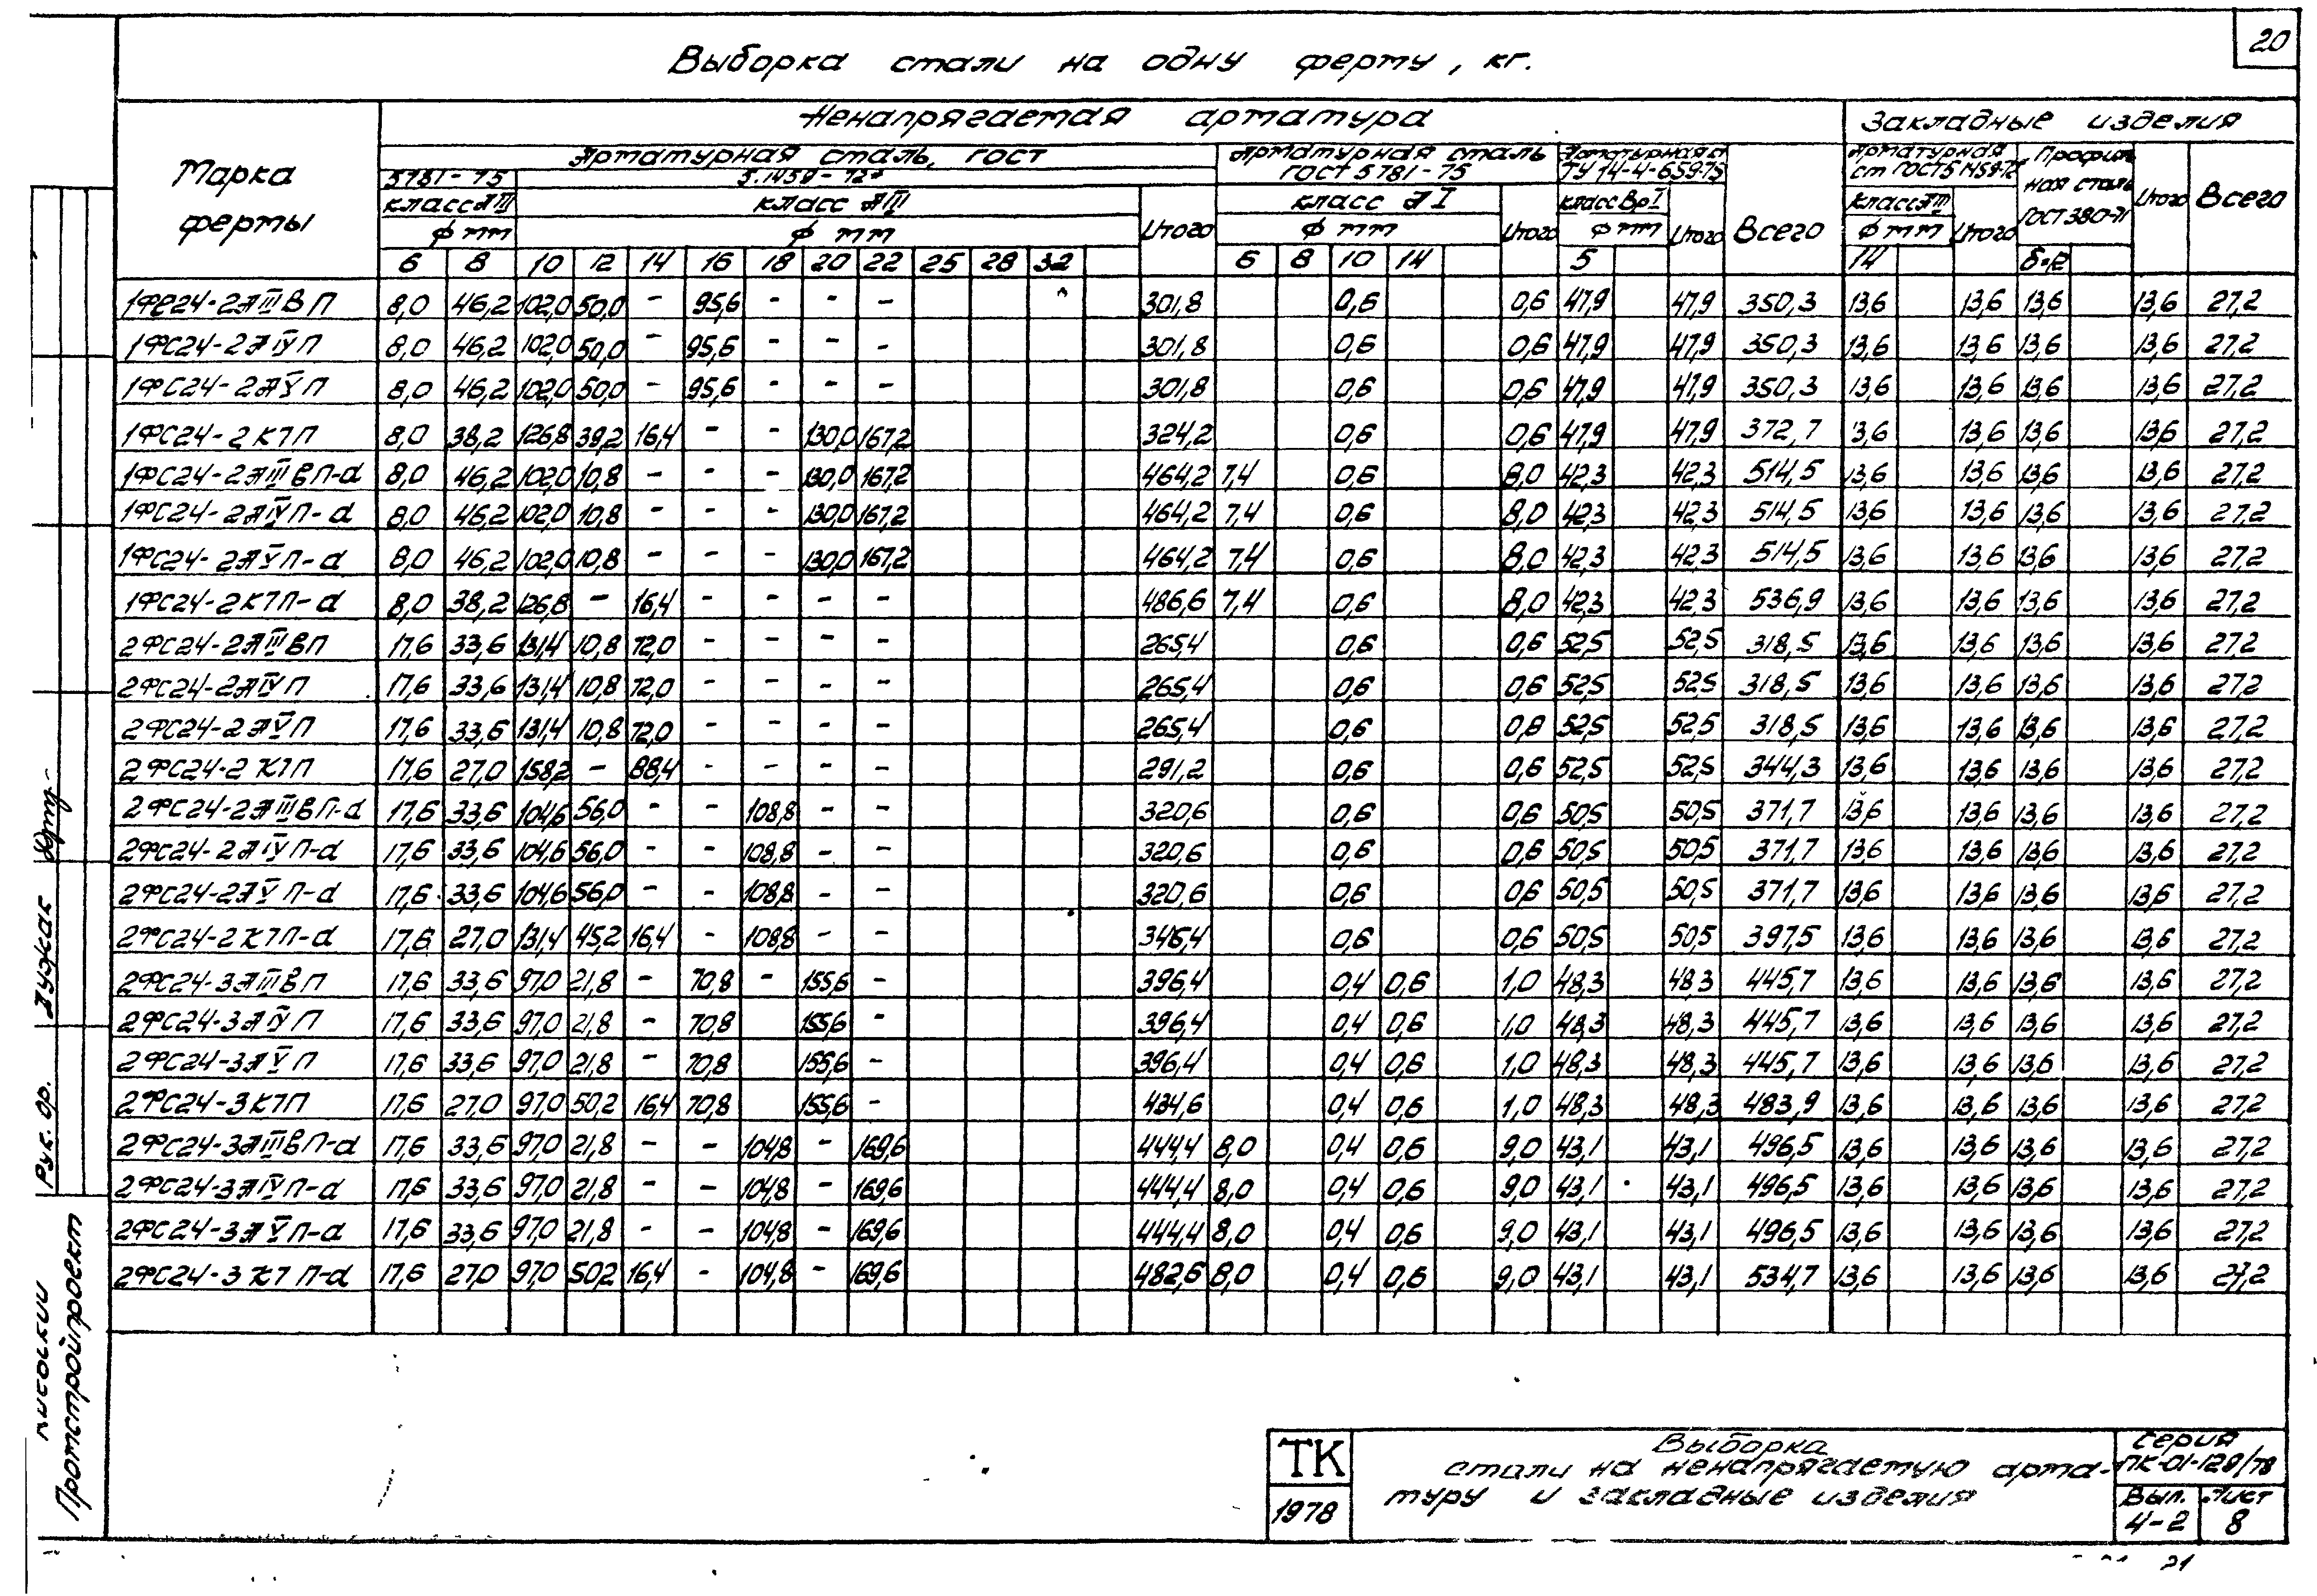 20
Выборка стали на одну ферму, кг.
Марка фермы
Ненапрягаемая арматура
Закладные изделия
Арматурная сталь, ГОСТ
5781-75
5.1459-72*
класс АIII
класс АIII
ф мм
ф мм
Итого
Арматурная сталь ГОСТ 5781-75
класс АI
ф мм
Итого
ТУ 14-4-659-75
класс ВрI
ф мм
Итого
Всего
Арматурная ст ГОСТ 5.1459-72
класс АIII
ф мм
Итого
Профильная сталь ГОСТ 380-71
Итого
Всего
6 8 10 12 14 16 18 20 22 25 28 32 6 8 10 14 5 14
1ФС24-2АIIIВП 8,0 46,2 102,0 50,0 - 95,6 - - - 301,8 0,6 0,6 47,9 47,9 350,3 13,6 13,6 13,6 13,6 27,2
1ФС24-2АIVП 8,0 46,2 102,0 50,0 - 95,6 - - - 301,8 0,6 0,6 47,9 47,9 350,3 13,6 13,6 13,6 13,6 27,2
1ФС24-2АVП 8,0 46,2 102,0 50,0 - 95,6 - - - 301,8 0,6 0,6 47,9 47,9 350,3 13,6 13,6 13,6 13,6 27,2
1ФС24-2К7П 8,0 38,2 126,8 39,2 16,4 - - 130,0 167,2 324,2 0,6 0,6 47,9 47,9 372,7 3,6 13,6 13,6 13,6 27,2
1ФС24-2АIIIВП-а 8,0 46,2 102,0 10,8 - - - 130,0 167,2 464,2 7,4 0,6 8,0 42,3 42,3 514,5 13,6 13,6 13,6 13,6 27,2
1ФС24-2АIVП-а 8,0 46,2 102,0 10,8 - - - 130,0 167,2 464,2 7,4 0,6 8,0 42,3 42,3 514,5 13,6 13,6 13,6 13,6 27,2
1ФС24-2АVП-а 8,0 46,2 102,0 10,8 - - - 130,0 167,2 464,2 7,4 0,6 8,0 42,3 42,3 514,5 13,6 13,6 13,6 13,6 27,2
1ФС24-2К7П-а 8,0 38,2 126,8 - 16,4 - - - - 486,6 7,4 0,6 8,0 42,3 42,3 536,9 13,6 13,6 13,6 13,6 27,2
2ФС24-2АIIIВП 17,6 33,6 131,4 10,8 72,0 - - - - 265,4 0,6 0,6 52,5 52,5 318,5 13,6 13,6 13,6 13,6 27,2
2ФС24-2АIVП 17,6 33,6 131,4 10,8 72,0 - - - - 265,4 0,6 0,6 52,5 52,5 318,5 13,6 13,6 13,6 13,6 27,2
2ФС24-2АVП 17,6 33,6 131,4 10,8 72,0 - - - - 265,4 0,6 0,6 52,5 52,5 318,5 13,6 13,6 13,6 13,6 27,2
2ФС24-2К7П 17,6 27,0 158,2 - 88,4 - - - - 291,2 0,6 0,6 52,5 52,5 344,3 13,6 13,6 13,6 13,6 27,2
2ФС24-2АIIIВП-а 17,6 33,6 104,6 56,0 - - 108,8 - - 320,6 0,6 0,6 50,5 50,5 371,7 13,6 13,6 13,6 13,6 27,2
2ФС24-2АIVП-а 17,6 33,6 104,6 56,0 - - 108,8 - - 320,6 0,6 0,6 50,5 50,5 371,7 13,6 13,6 13,6 13,6 27,2
2ФС24-2АVП-а 17,6 33,6 104,6 56,0 - - 108,8 - - 320,6 0,6 0,6 50,5 50,5 371,7 13,6 13,6 13,6 13,6 27,2
2ФС24-2К7П-а 17,6 27,0 131,4 45,2 16,4 - 108,8 - - 346,4 0,6 0,6 50,5 50,5 397,5 13,6 13,6 13,6 13,6 27,2
2ФС24-3АIIIВП 17,6 33,6 97,0 21,8 - 70,8 - 155,6 - 396,4 0,4 0,6 1,0 48,3 48,3 445,7 13,6 13,6 13,6 13,6 27,2
2ФС24-3АIVП 17,6 33,6 97,0 21,8 - 70,8 155,6 - 396,4 0,4 0,6 1,0 48,3 48,3 445,7 13,6 13,6 13,6 13,6 27,2
2ФС24-3АVП 17,6 33,6 97,0 21,8 - 70,8 155,6 - 396,4 0,4 0,6 1,0 48,3 48,3 445,7 13,6 13,6 13,6 13,6 27,2
2ФС24-3К7П 17,6 27,0 97,0 50,2 16,4 70,8 155,6 - 434,6 0,4 0,6 1,0 48,3 48,3 483,9 13,6 13,6 13,6 13,6 27,2
2ФС24-3АIIIВП-а 17,6 33,6 97,0 21,8 - - 104,8 - 169,6 444,4 8,0 0,4 0,6 9,0 43,1 43,1 496,5 13,6 13,6 13,6 13,6 27,2
2ФС24-3АIVП-а 17,6 33,6 97,0 21,8 - - 104,8 - 169,6 444,4 8,0 0,4 0,6 9,0 43,1 43,1 496,5 13,6 13,6 13,6 13,6 27,2
2ФС24-3АVП-а 17,6 33,6 97,0 21,8 - - 104,8 - 169,6 444,4 8,0 0,4 0,6 9,0 43,1 43,1 496,5 13,6 13,6 13,6 13,6 27,2
2ФС24-3К7П-а 17,6 27,0 97,0 50,2 16,4 - 104,8 - 169,6 482,6 8,0 0,4 0,6 9,0 43,1 43,1 534,7 13,6 13,6 13,6 13,6 27,2
Рук. гр.
Промстройпроект
ТК
1978
Выборка
стали на ненапрягаемую арма-
туру и закладные изделия
Серия
ПК-01-129/78
Вып. Лист
4-2 8
21